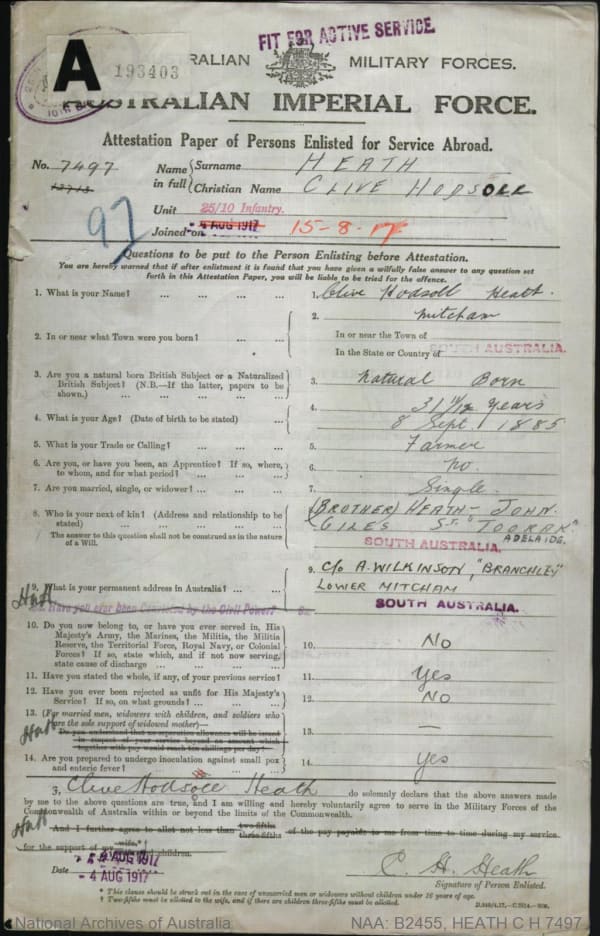 FIT FOR ACTIVE SERVICE.
A
193403
RALIAN MILITARY FORCES.
AUSTRALIAN IMPERIAL FORCE.
Attestation Paper of Persons Enlisted for Service Abroad.
No. 7497
Name in full
Surname HEATH
Christian Name CLIVE HODSOLL
Unit 25/10 Infantry.
Joined on 4 AUG 1917 15-8-17
97
Questions to be put to the Person Enlisting before Attestation.
You are hereby warned that if after enlistment it is found that you have given a wilfully false answer to any question set
forth in this Attestation Paper, you will be liable to be tried for the offence.
1. What is your Name? ... ... ... 1. Clive Hodsoll Heath.
2. In or near what Town were you born? ... ... 2. Mitcham
In or near the Town of
In the State or Country of SOUTH AUSTRALIA.
3. Are you a natural born British Subject or a Naturalized
British Subject? (N.B.—If the latter, papers to be
shown.) ... ... ... ... 3. Natural Born
4. What is your Age? (Date of birth to be stated) ... 4. 31 11/12 Years
8 Sept. 1885
5. What is your Trade or Calling? ... ... ... 5. Farmer
6. Are you, or have you been, an Apprentice? If so, where,
to whom, and for what period? ... ... 6. no.
7. Are you married, single, or widower? ... ... 7. Single.
8. Who is your next of kin? (Address and relationship to be
stated) ... ... ... ...
The answer to this question shall not be construed as in the nature
of a Will.
(BROTHER) HEATH - JOHN
GILES ST. "TOORAK"
ADELAIDE.
SOUTH AUSTRALIA.
9. What is your permanent address in Australia? ... ... 9. C/o A. WILKINSON, "BRANCHLEY"
LOWER MITCHAM
SOUTH AUSTRALIA.
9a. Have you ever been Convicted by the Civil Power? 9a.
10. Do you now belong to, or have you ever served in, His
Majesty's Army, the Marines, the Militia, the Militia
Reserve, the Territorial Force, Royal Navy, or Colonial
Forces? If so, state which, and if not now serving,
state cause of discharge ... ... ... 10. No
11. Have you stated the whole, if any, of your previous service? 11. Yes
12. Have you ever been rejected as unfit for His Majesty's
Service? If so, on what grounds? ... ... ... 12. No
13. (For married men, widowers with children, and soldiers who
are the sole support of widowed mother)—
Do you understand that no separation allowance will be issued
in respect of your service beyond an amount which
together with pay would reach ten shillings per day? 13. —
14. Are you prepared to undergo inoculation against small pox
and enteric fever? ... ... ... ... 14. Yes
I, Clive Hodsoll Heath do solemnly declare that the above answers made
by me to the above questions are true, and I am willing and hereby voluntarily agree to serve in the Military Forces of the
Commonwealth of Australia within or beyond the limits of the Commonwealth.
And I further agree to allot not less than two-fifths three-fifths of the pay payable to me from time to time during my service
for the support of my wife, and children.
Date 4 AUG 1917
C. H. Heath
Signature of Person Enlisted.
* This clause should be struck out in the case of unmarried men or widowers without children under 16 years of age.
† Two-fifths must be allotted to the wife, and if there are children three-fifths must be allotted.
National Archives of Australia NAA: B2455, HEATH C H 7497